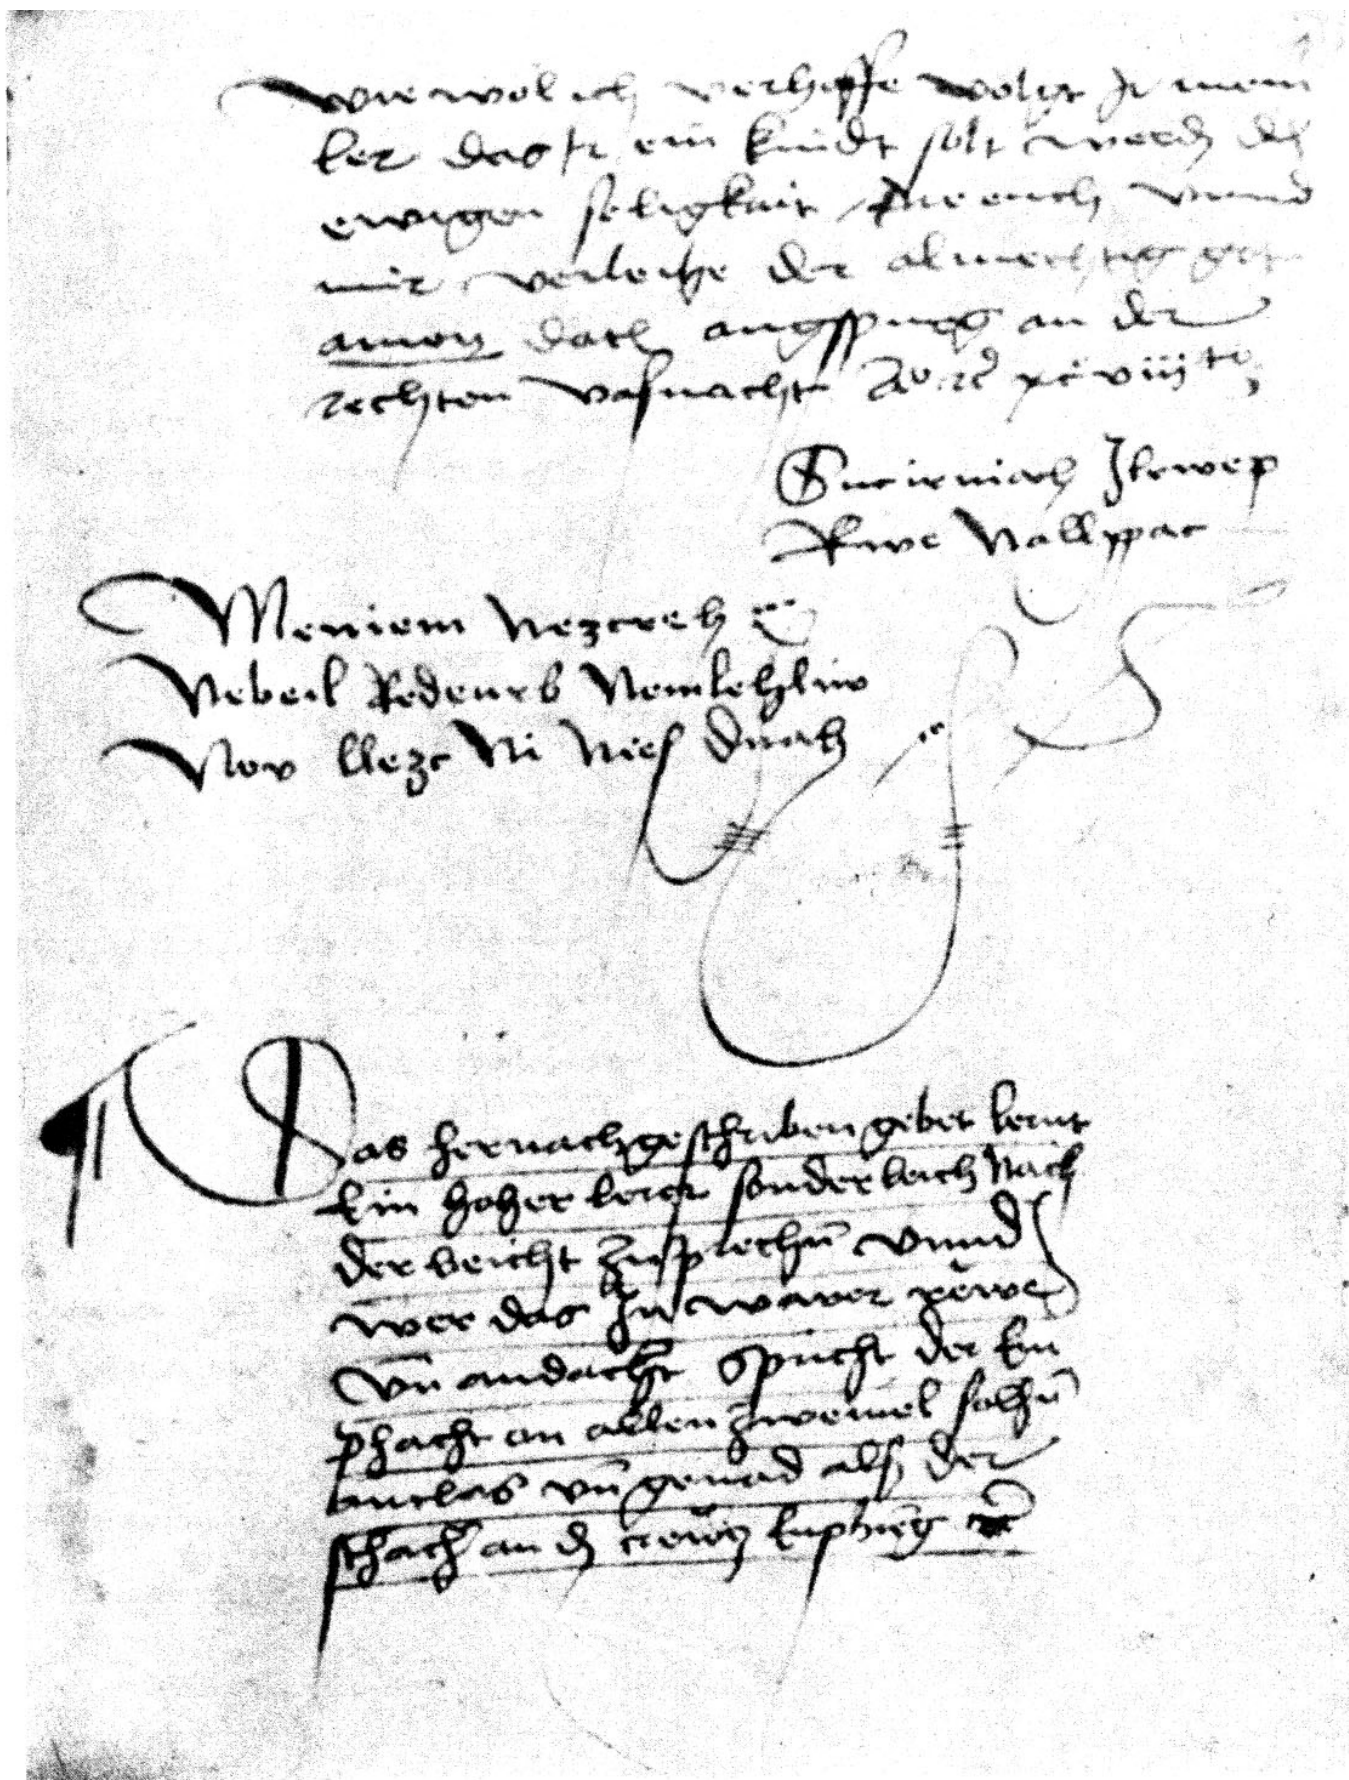 wie wol ich verhoffe volgt Ir meiner
ler das Ir ein kindt solt werden der
ewigen seligkait die euch vnnd
mir verleihe der almechtig got
amen dat augspurg an der
rechten vasnacht A° rc xcviij to
Sucirniach Jlrwep
Rwe Nallppac
Meniem Nezcreh
Nebeil Redeurb Nemlehliw
Nov llezc Ni Nies Dnah
Das hernachgeschriben gebet lernt
Ein hoher lerer sonderleich Nach
der beicht zusprechn̄ vnnd
wer das In warer rewe
vn̄ andacht spricht der Em
phacht on allen zweiuel solhn̄
anclas vn̄ genad als der
schacher an dem creucz Emphieng